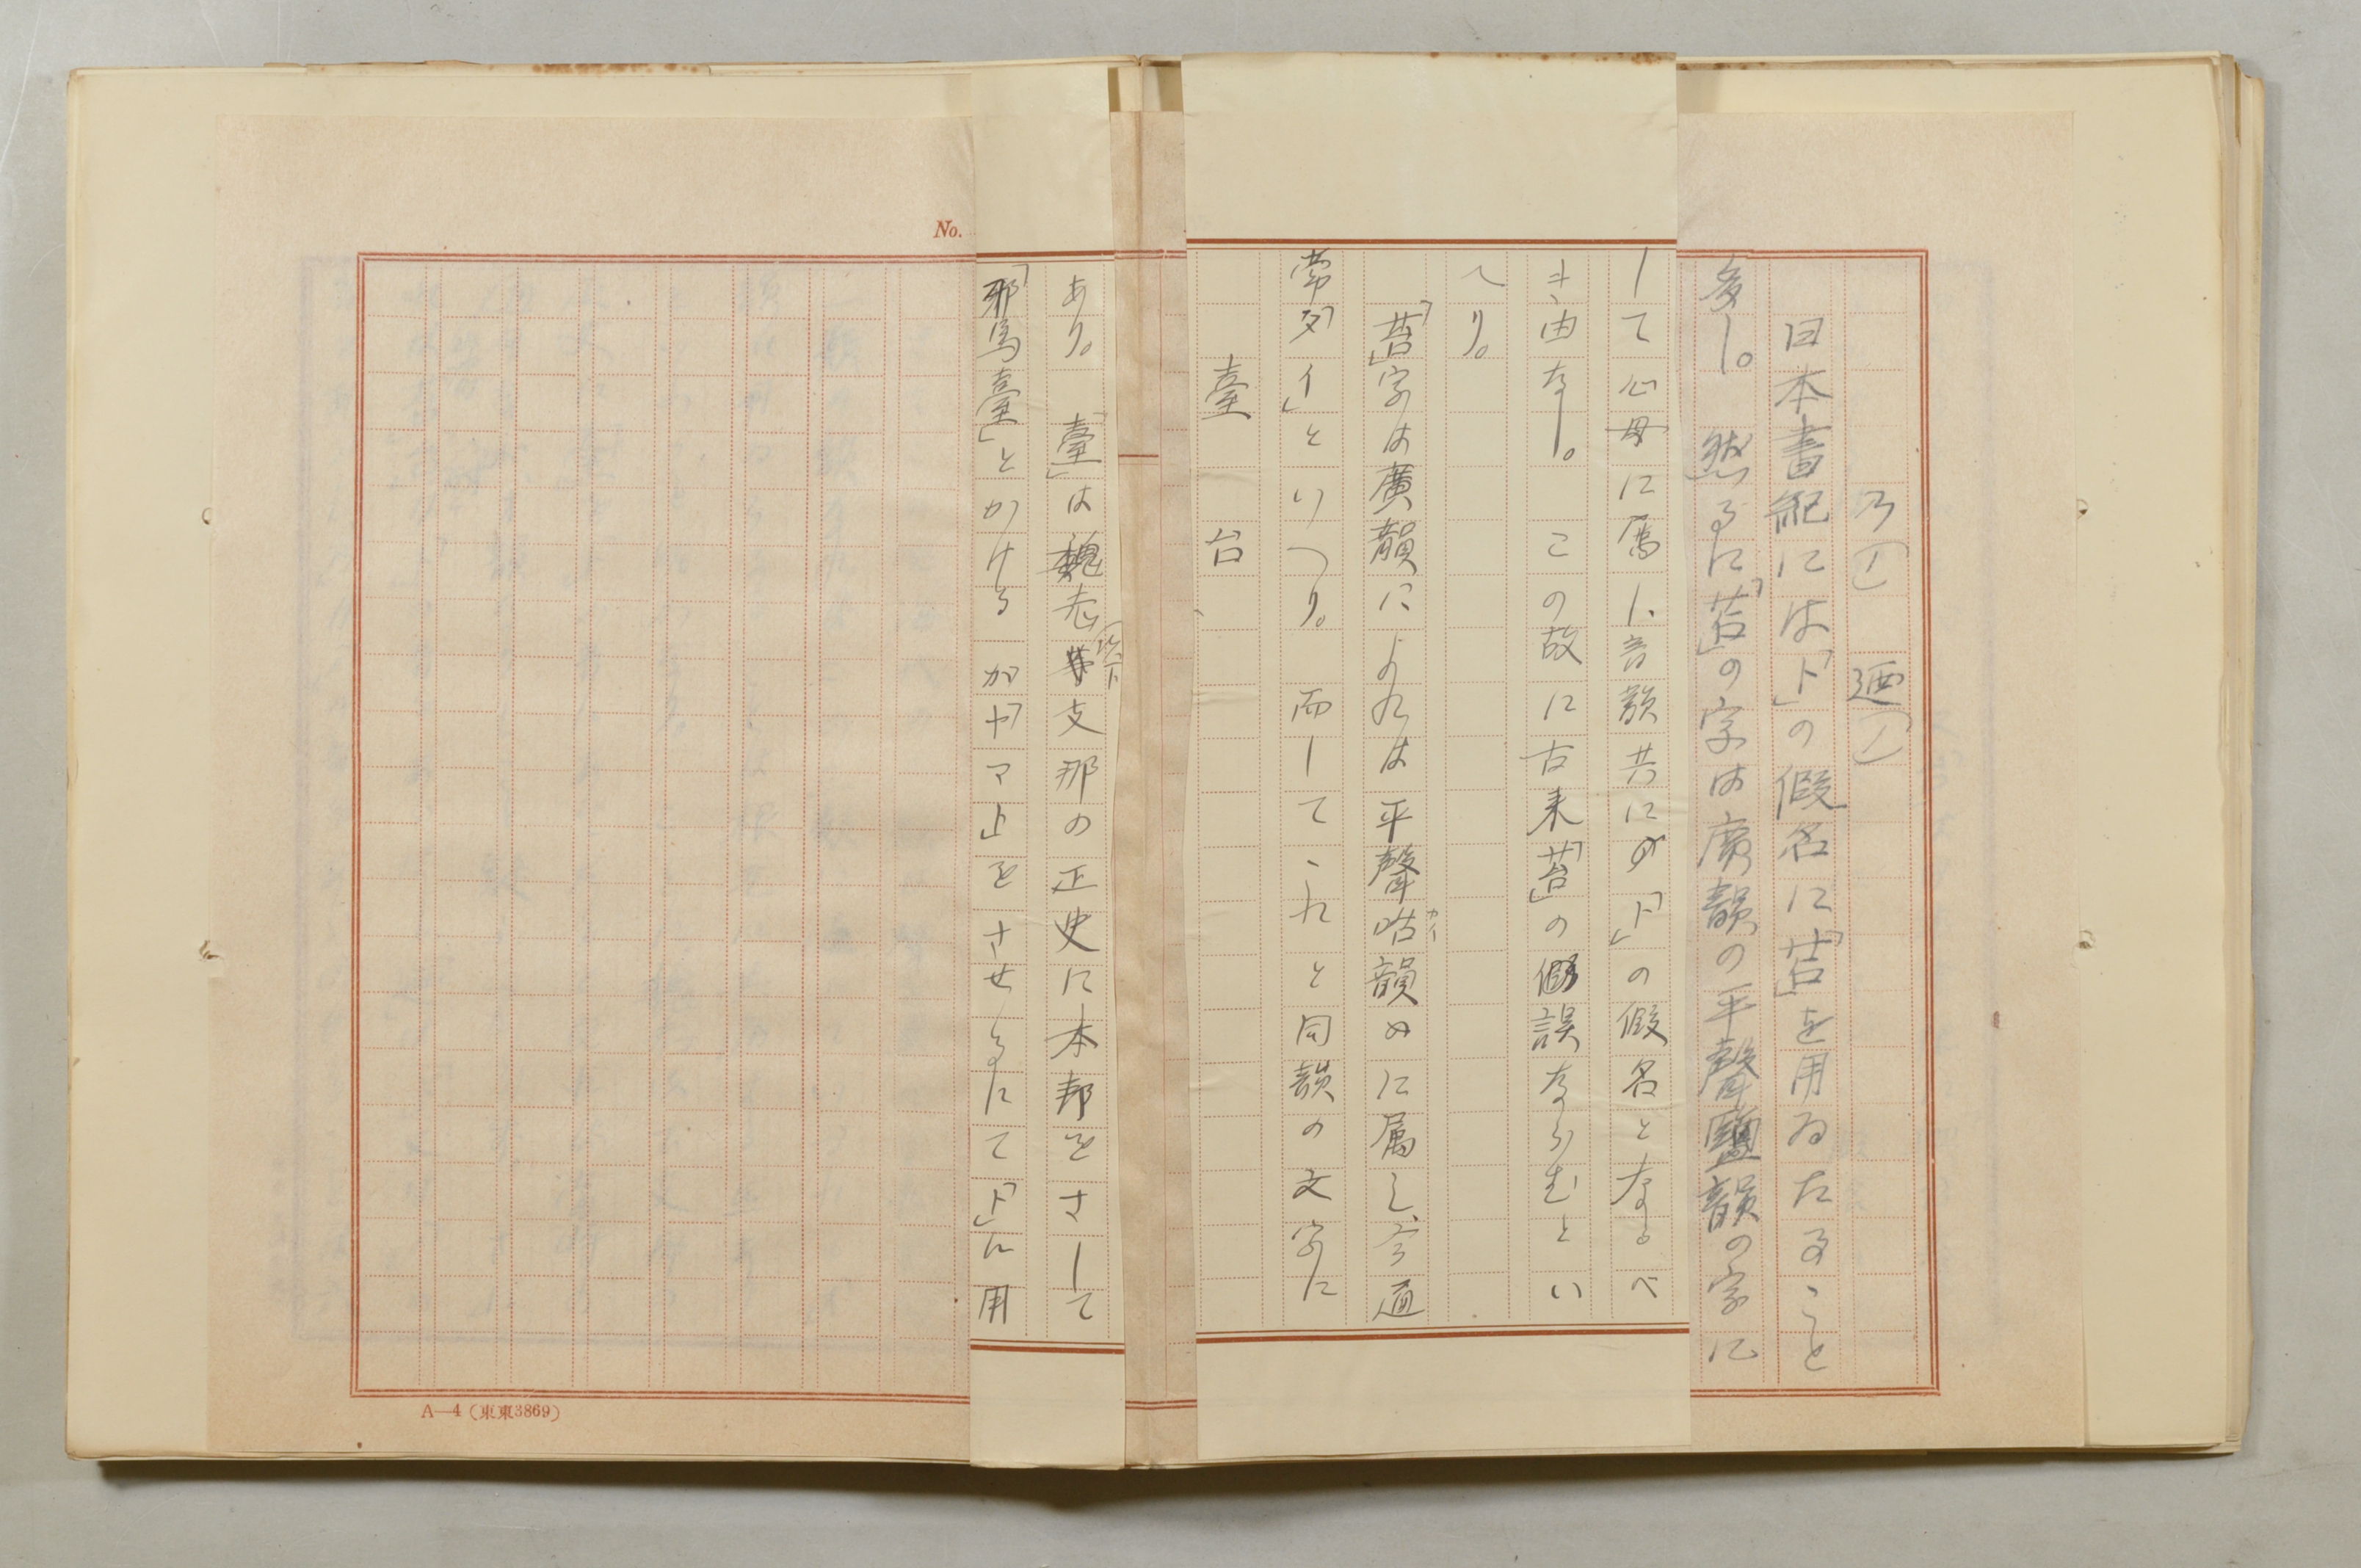 乃(1) 廼(1)
日本書紀には「ト」の假名に「苔」を用ゐたること
多し。 然るに「苫」の字は廣韻の平聲鹽韻の字に
して心母に属し、音韻共に「ト」の假名となるべ
き由なし。 この故に古来「苔」の誤ならむとい
へり。
「苔」字は廣韻によれば平聲咍韻に属し、普通
常「タイ」といへり。 而してこれと同韻の文字に
臺 台
あり。「臺」は魏志以下支那の正史に本邦をさして
「邪馬臺」とかける が「ヤマト」をさせるにて「ト」に用
No.
A—4 (東東3869)